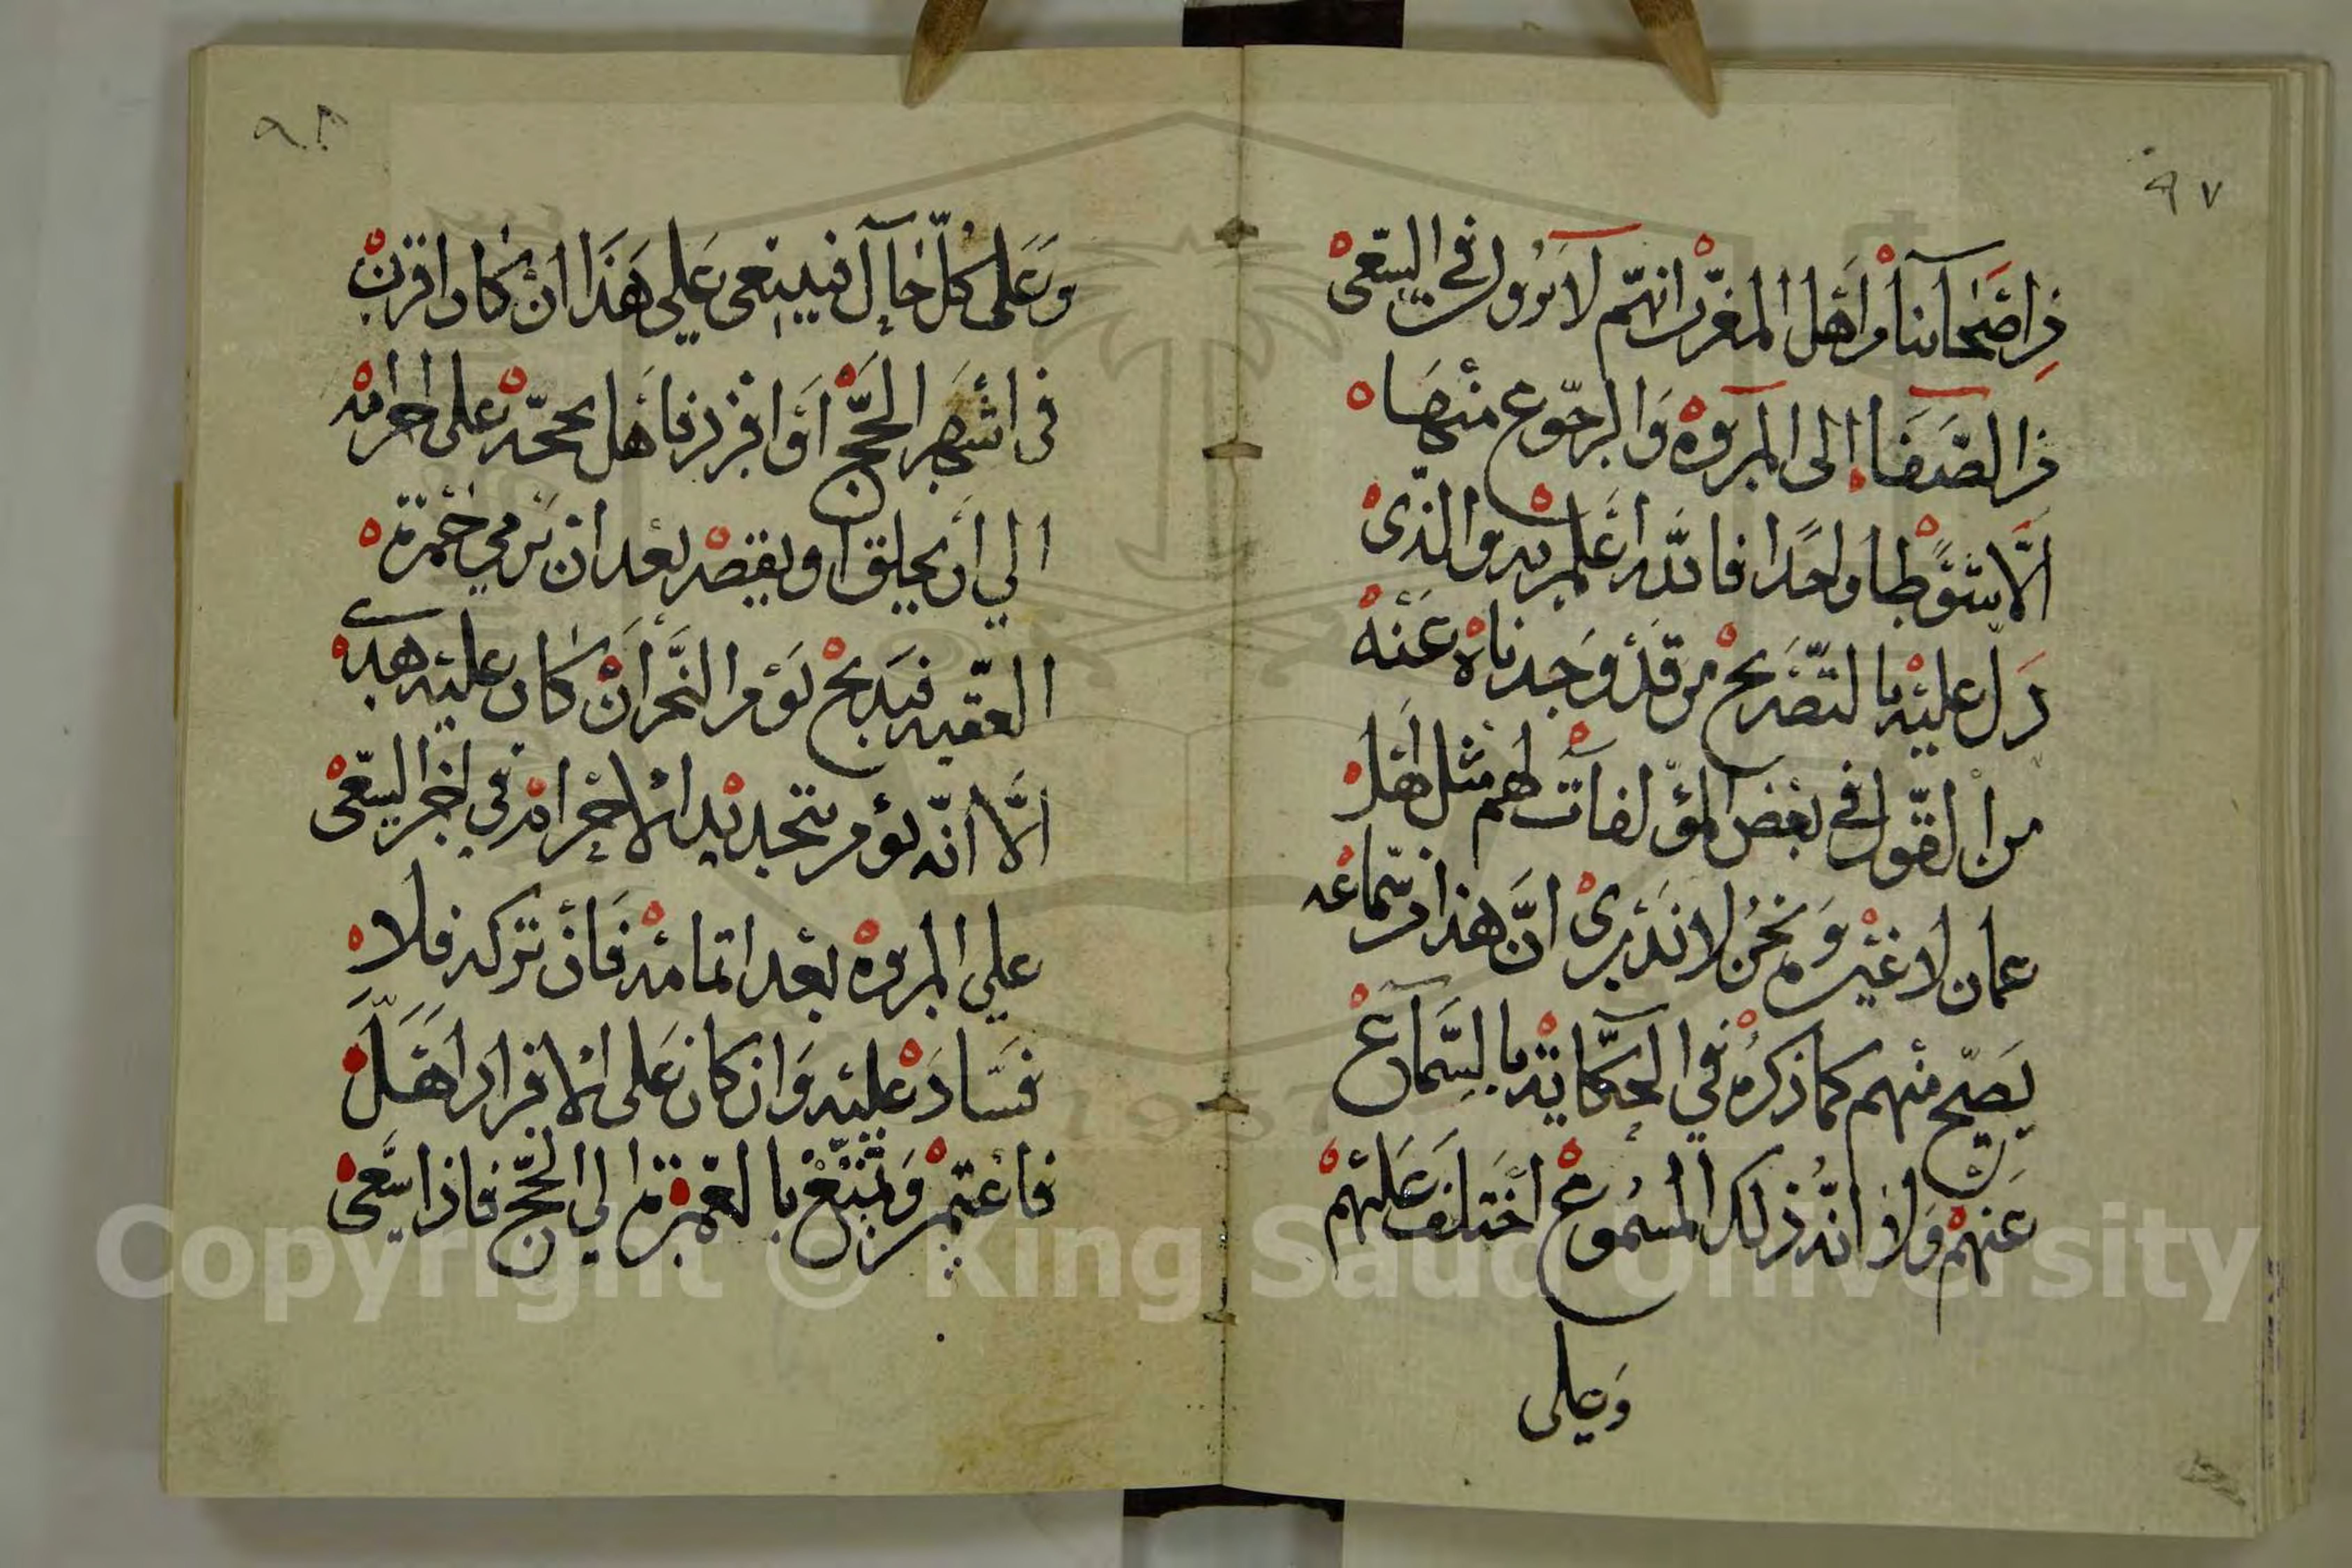 ٩٧
من أصحابنا من أهل المغرب انهم لا يرون في السعي
من الصفا إلى المروة والرجوع منها
إلّا شوطا واحدا فالله أعلم به والذي
دل عليه بالتصريح من قد وجدناه عنه
من القول في بعض المؤلفات لهم مثل أهل
عمان لا غيره ونحن لا ندري انّ هذا من سماعه
يصحّ منهم كما ذكره في الحكاية بالسماع
عنهم ولا انّ ذلك المسموع اختلف عليهم
وعلى
٩٨
وعلى كلّ حال فينبغي على هذا ان كان اقرن
في اشهر الحجّ أو افرد فأهل بحجّه على احرامه
الي ان يحلق او يقصر بعد ان يرمي جمرة
العقبه فيذبح يوم النحر ان كان عليه هدي
الّا انّه يؤمر بتجديد الاحرامه في اخر السعي
على المروة بعد اتمامه فان تركه فلا
فساد عليه وان كان على الافراد اهلّ
فاعتمر وتمتع بالعمرة الي الحجّ فاذا سعى
Copyright © King Saud University
1957